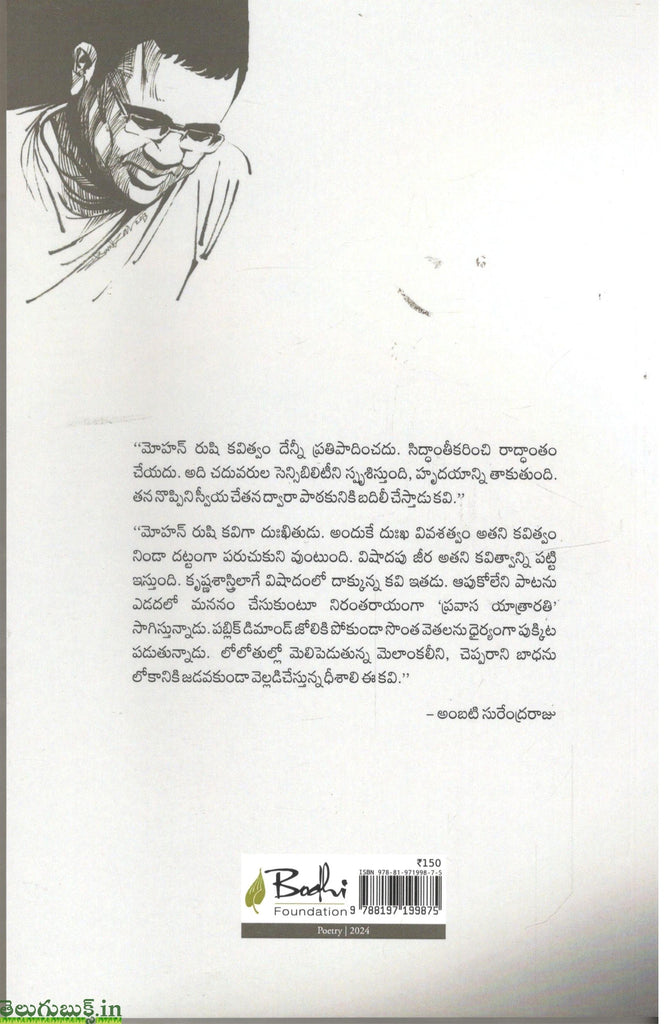 “మోహన్ రుషి కవిత్వం దేన్నీ ప్రతిపాదించదు. సిద్ధాంతీకరించి రాద్ధాంతం
చేయదు. అది చదువరుల సెన్సిబిలిటీని స్పృశిస్తుంది, హృదయాన్ని తాకుతుంది.
తన నొప్పిని స్వీయ చేతన ద్వారా పాఠకునికి బదిలీ చేస్తాడు కవి.”
“మోహన్ రుషి కవిగా దుఃఖితుడు. అందుకే దుఃఖ వివశత్వం అతని కవిత్వం
నిండా దట్టంగా పరుచుకుని వుంటుంది. విషాదపు జీర అతని కవిత్వాన్ని పట్టి
ఇస్తుంది. కృష్ణశాస్త్రిలాగే విషాదంలో దాక్కున్న కవి ఇతడు. ఆపుకోలేని పాటను
ఎడదలో మననం చేసుకుంటూ నిరంతరాయంగా ‘ప్రవాస యాత్రారతి’
సాగిస్తున్నాడు. పబ్లిక్ డిమాండ్ జోలికి పోకుండా సొంత వెతలను ధైర్యంగా పుక్కిట
పడుతున్నాడు. లోలోతుల్లో మెలిపెడుతున్న మెలాంకలీని, చెప్పరాని బాధను
లోకానికి జడవకుండా వెల్లడిచేస్తున్న ధీశాలి ఈ కవి.”
– అంబటి సురేంద్రరాజు
₹150
ISBN 978-81-971998-7-5
Bodhi
Foundation
9 788197 199875
Poetry | 2024
తెలుగుబుక్స్.in